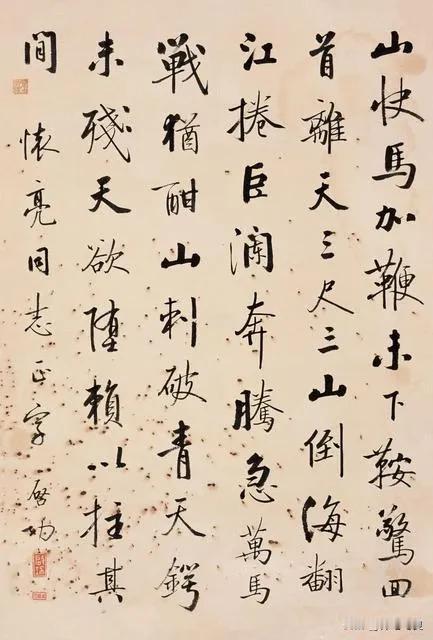 山快馬加鞭未下鞍驚回
首離天三尺三山倒海翻
江捲巨瀾奔騰急萬馬
戰猶酣山刺破青天鍔
未殘天欲墮賴以拄其
間
懷亮同志正字 啓功